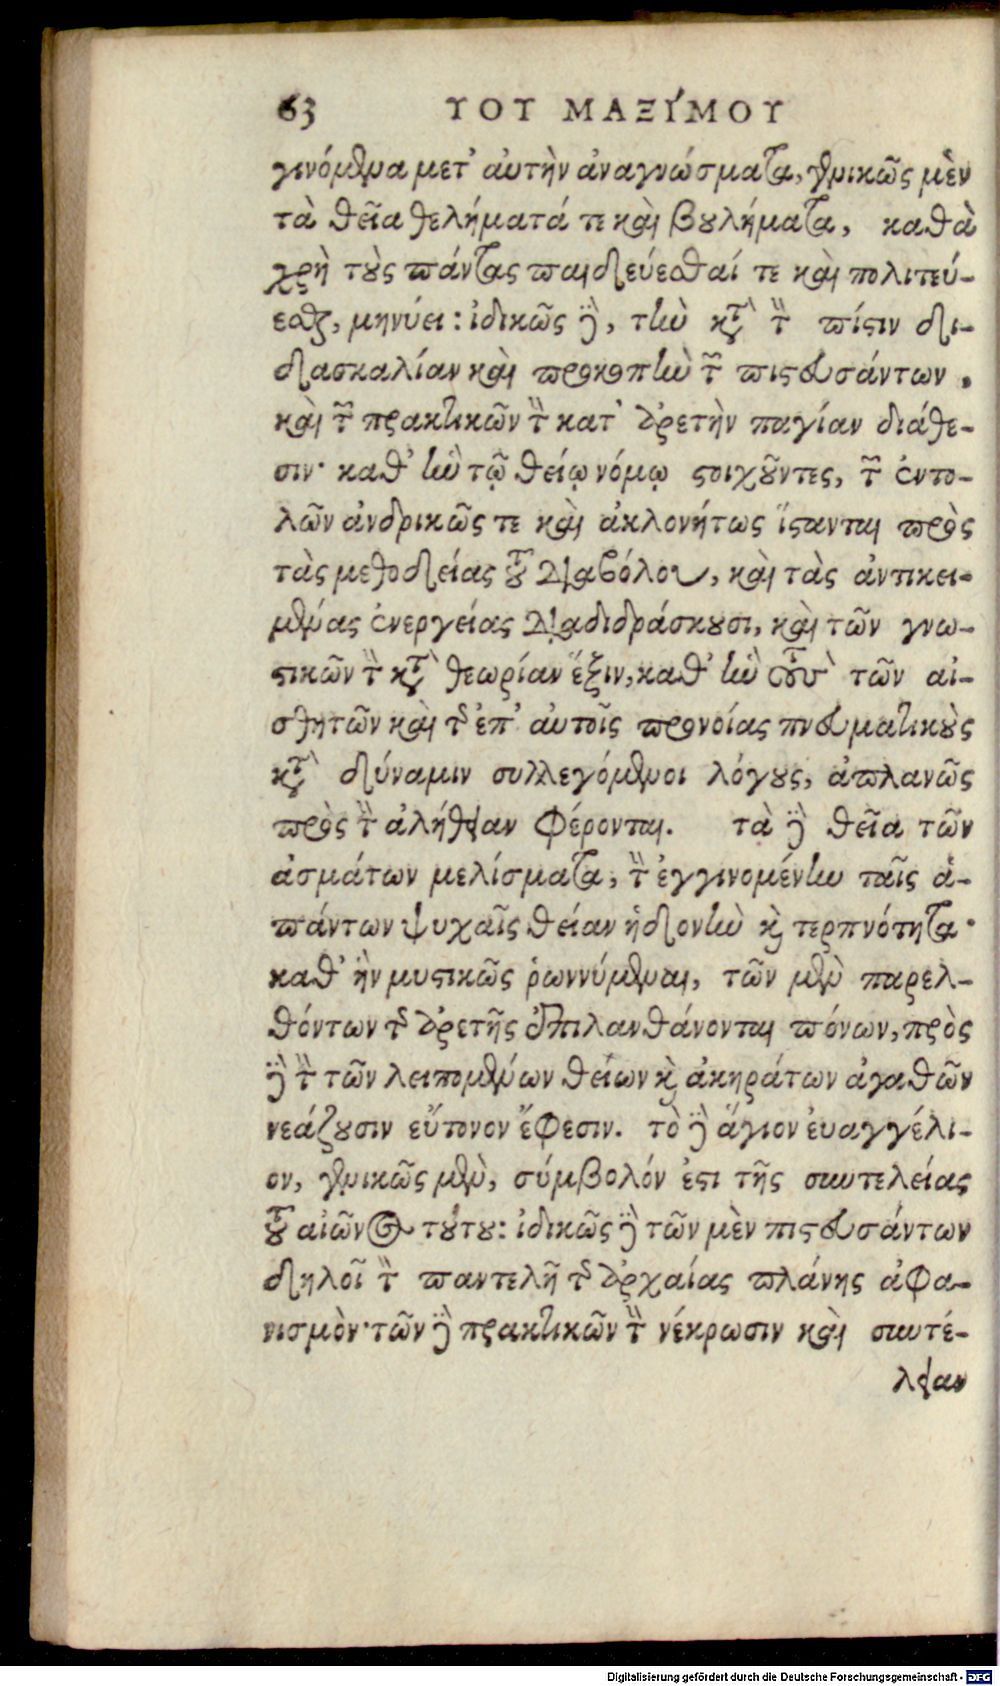 63 ΤΟΥ ΜΑΞΙΜΟΥ
γινόμενα μετ' αὐτὴν ἀναγνώσματα, γενικῶς μὲν
τὰ θεῖα θελήματά τε καὶ βουλήματα, καθὰ
χρὴ τοὺς πάντας παιδεύεσθαί τε καὶ πολιτεύ-
εσθαι, μηνύει: ἰδικῶς δὲ, τὴν κατὰ τὴν πίστιν δι-
δασκαλίαν καὶ προκοπὴν τῶν πιστευσάντων,
καὶ τῶν πρακτικῶν τὴν κατ' ἀρετὴν παγίαν διάθε-
σιν· καθ' ἣν τῷ θείῳ νόμῳ στοιχοῦντες, τῶν ἐντο-
λῶν ἀνδρικῶς τε καὶ ἀκλονήτως ἵστανται πρὸς
τὰς μεθοδείας τοῦ διαβόλου, καὶ τὰς ἀντικει-
μένας ἐνεργείας διαδιδράσκουσι, καὶ τῶν γνω-
στικῶν τὴν κατὰ θεωρίαν ἕξιν, καθ' ἣν τοὺς τῶν αἰ-
σθητῶν καὶ τῆς ἐπ' αὐτοῖς προνοίας πνευματικοὺς
κατὰ δύναμιν συλλεγόμενοι λόγους, ἀπλανῶς
πρὸς τὴν ἀλήθειαν φέρονται. τὰ δὲ θεῖα τῶν
ἀσμάτων μελίσματα, τὴν ἐγγινομένην ταῖς ἁ-
πάντων ψυχαῖς θείαν ἡδονὴν καὶ τερπνότητα·
καθ' ἣν μυστικῶς ῥωννύμεναι, τῶν μὲν παρελ-
θόντων τῆς ἀρετῆς ἐπιλανθάνονται πόνων, πρὸς
δὲ τὴν τῶν λειπομένων θείων καὶ ἀκηράτων ἀγαθῶν
νεάζουσιν εὔτονον ἔφεσιν. τὸ δὲ ἅγιον ἐυαγγέλι-
ον, γενικῶς μὲν, σύμβολόν ἐστι τῆς συντελείας
τοῦ αἰῶνος τούτου: ἰδικῶς δὲ τῶν μὲν πιστευσάντων
δηλοῖ τὴν παντελῆ τῆς ἀρχαίας πλάνης ἀφα-
νισμὸν· τῶν δὲ πρακτικῶν τὴν νέκρωσιν καὶ συντέ-
λειαν
Digitalisierung gefördert durch die Deutsche Forschungsgemeinschaft - DFG